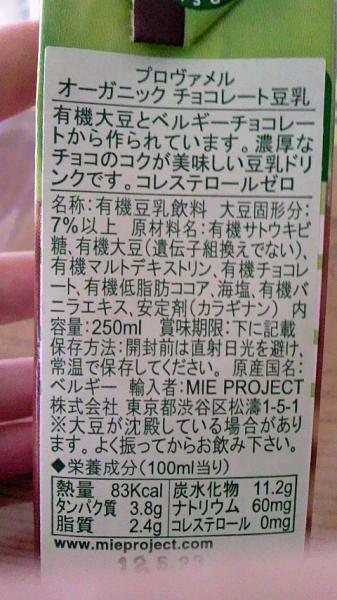 プロヴァメル
オーガニック チョコレート豆乳
有機大豆とベルギーチョコレー
トから作られています。濃厚な
チョコのコクが美味しい豆乳ドリ
ンクです。コレステロールゼロ
名称:有機豆乳飲料 大豆固形分:
7%以上 原材料名:有機サトウキビ
糖、有機大豆(遺伝子組換えでない)、
有機マルトデキストリン、有機チョコレ
ート、有機低脂肪ココア、海塩、有機バ
ニラエキス、安定剤(カラギナン) 内
容量:250ml 賞味期限:下に記載
保存方法:開封前は直射日光を避け、
常温で保存してください。 原産国名:
ベルギー 輸入者:MIE PROJECT
株式会社 東京都渋谷区松濤1-5-1
※大豆が沈殿している場合があり
ます。よく振ってからお飲み下さい。
◆栄養成分(100ml当り)
熱量 83Kcal 炭水化物 11.2g
タンパク質 3.8g ナトリウム 60mg
脂質 2.4g コレステロール 0mg
www.mieproject.com